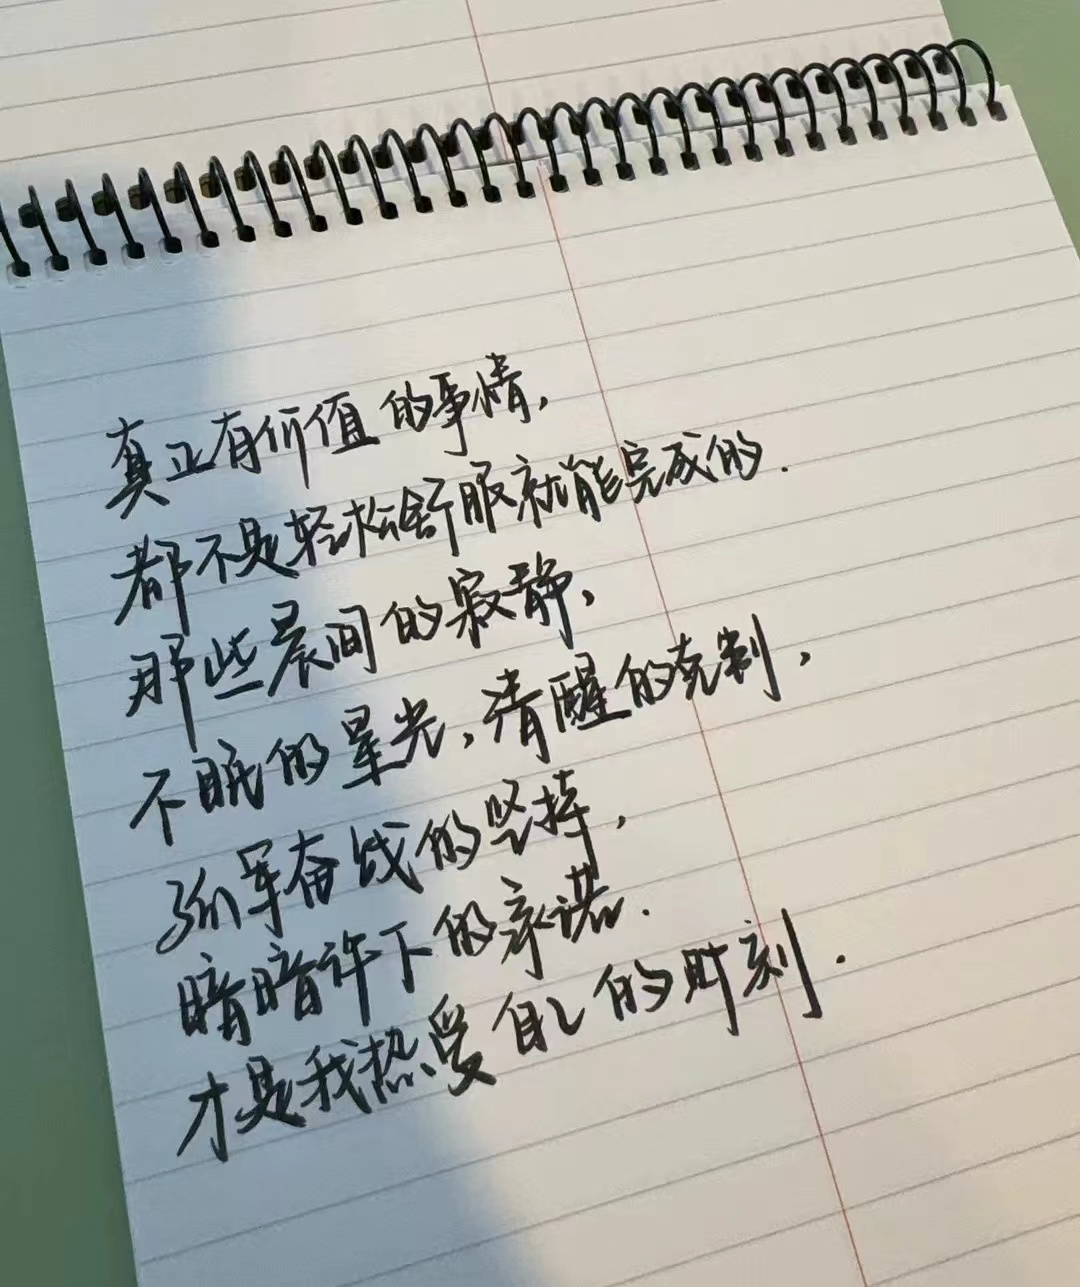 真正有价值的事情,
都不是轻松舒服就能完成的.
那些晨间的寂静,
不眠的星光,清醒的克制,
孤军奋战的坚持,
暗暗许下的承诺.
才是我热爱自己的时刻.